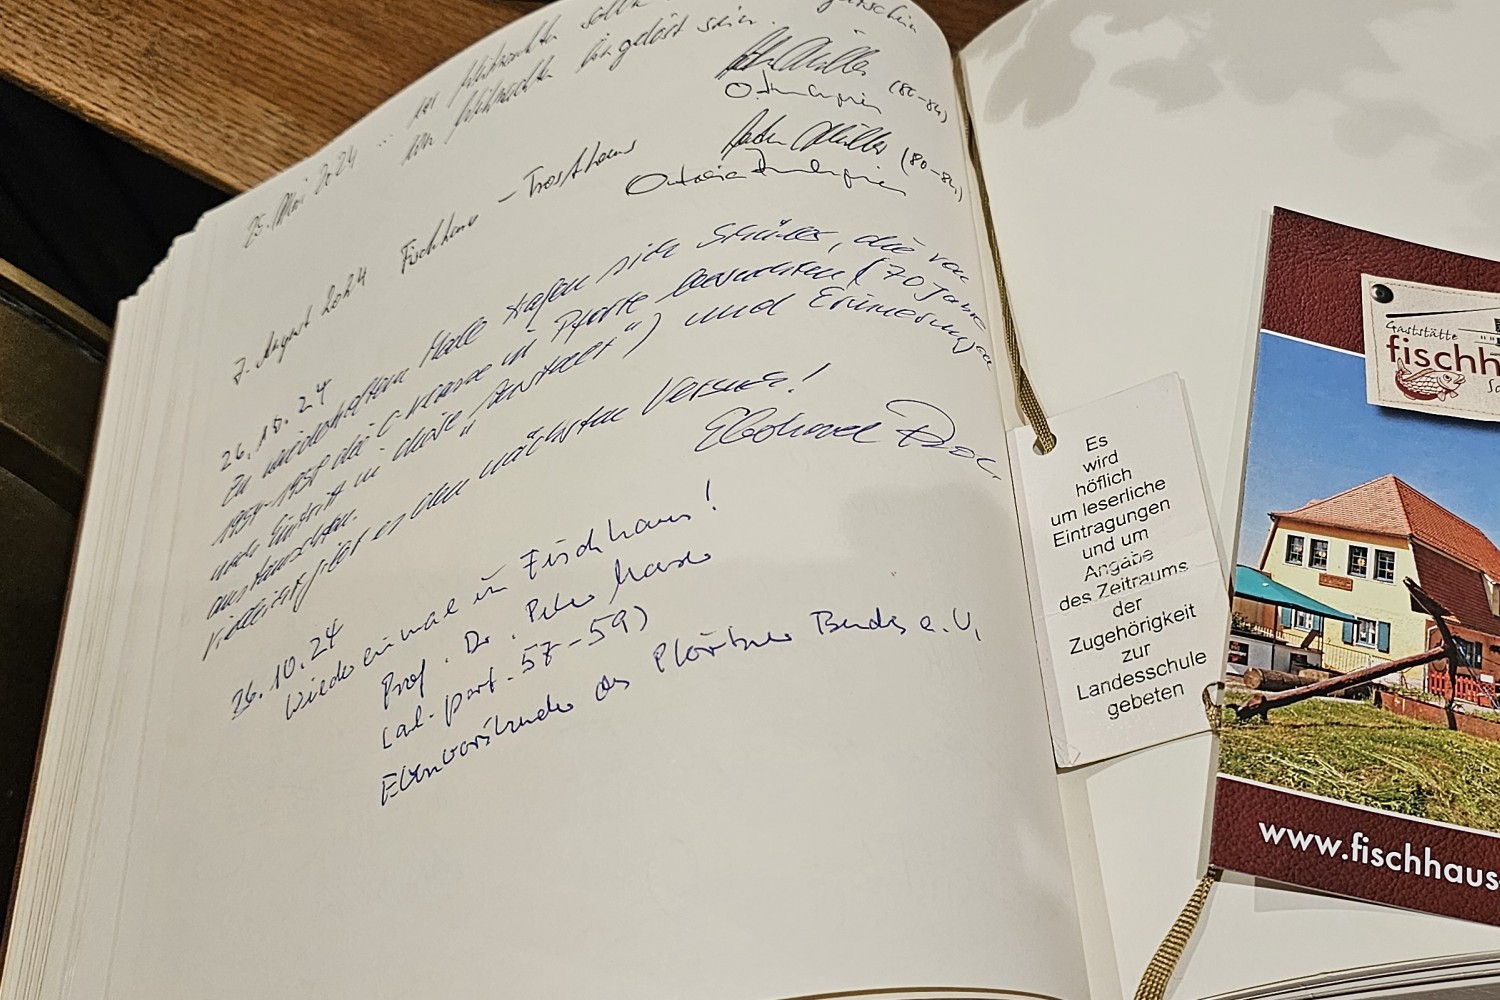 25. Mai 2024 ... zu Weihnachten sollte
Weihnachten eingelöst sein.
(80-84)
7. August 2024 Fischhaus - Trosthaus
(80-84)
26.10.24
Zu wiederholten Male trafen sich Schüler, die von
1954-1958 die C-Klasse in Pforte besuchten (70 Jahre
nach Eintritt in diese "Anstalt") und Erinnerungen
austauschten.
Vielleicht gibt es den nächsten Versuch!
Eberhard
26.10.24
Wieder einmal in Fischhaus!
Prof. Dr. Peter
(al. port. 57-59)
Ehrenvorsitzender des Pförtner Bundes e.V.
Es
wird
höflich
um leserliche
Eintragungen
und um
Angabe
des Zeitraums
der
Zugehörigkeit
zur
Landesschule
gebeten
Gaststätte
fischh
www.fischhaus-